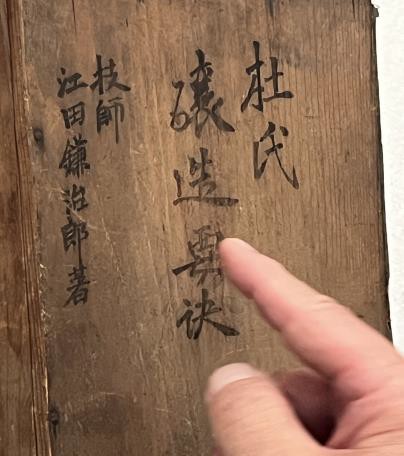 杜氏
醸造要訣
技師
江田鎌治郎著